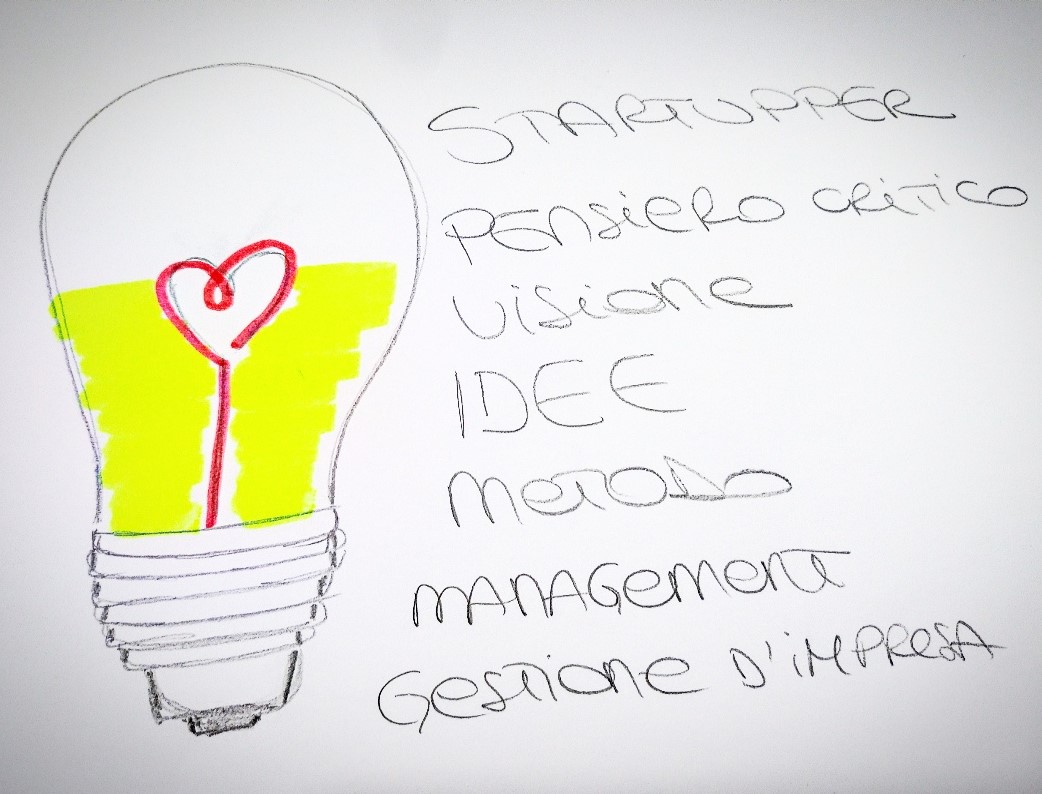 STARTUPPER
PENSiERO CRiTiCO
ViSione
IDEE
METODO
MANAGEMENT
GESTiONE D'iMPRESA